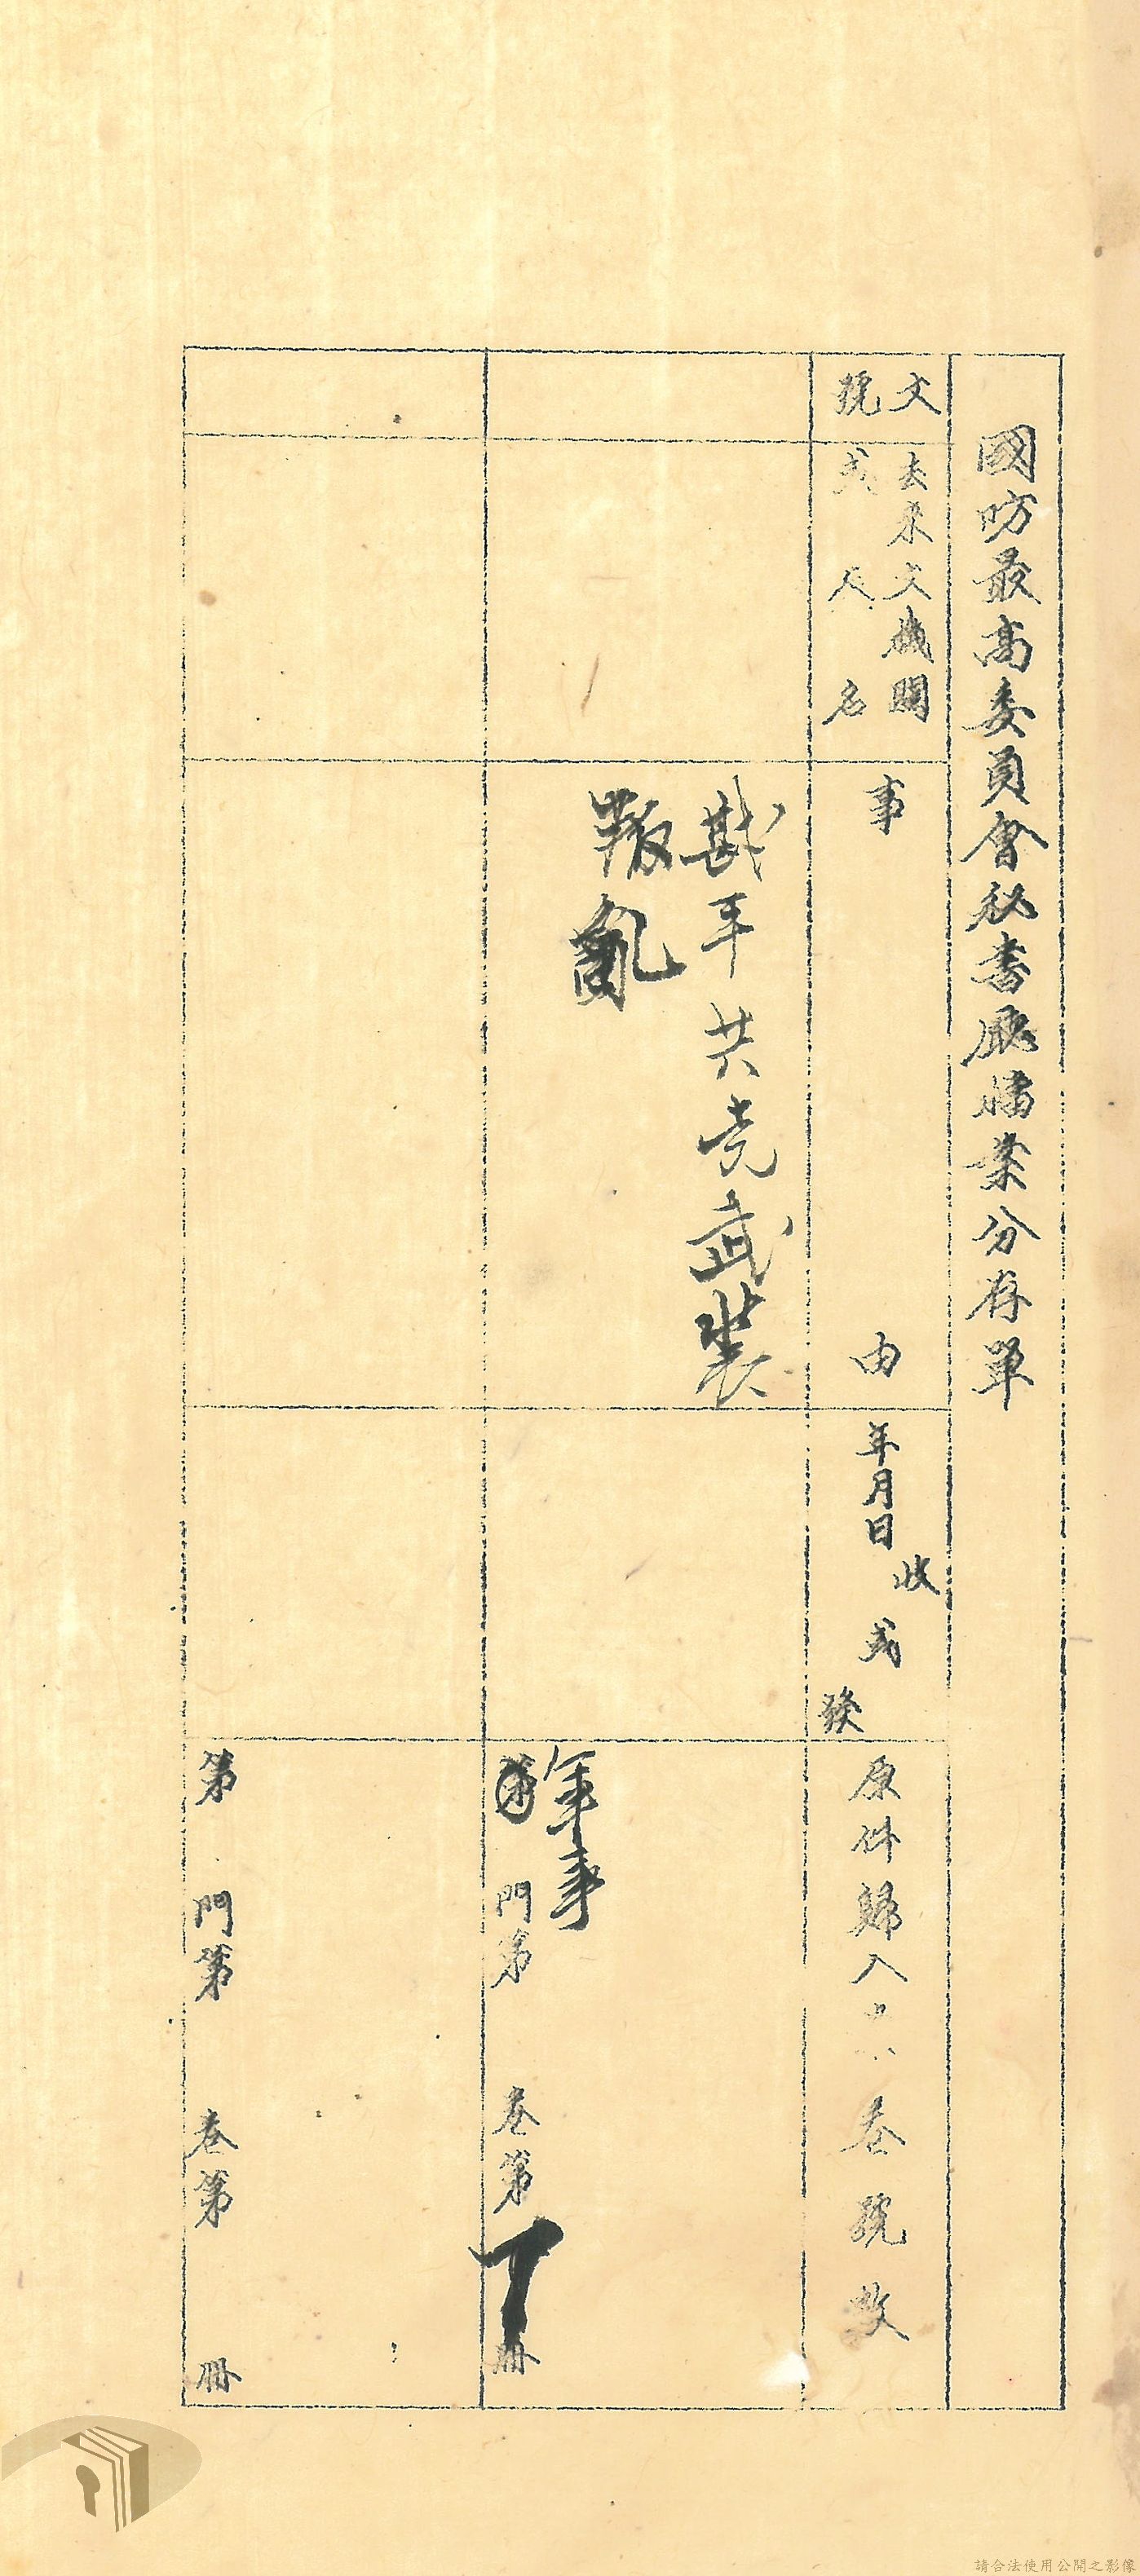 國防最高委員會秘書廳檔案分存單
文號
去來文機關
或人名
事由
年月日
收或發
原件歸入 卷號數
戡平共党武裝
叛亂
軍事
第 門第 卷第 冊
第 門第 卷第 冊
請合法使用公開之影像